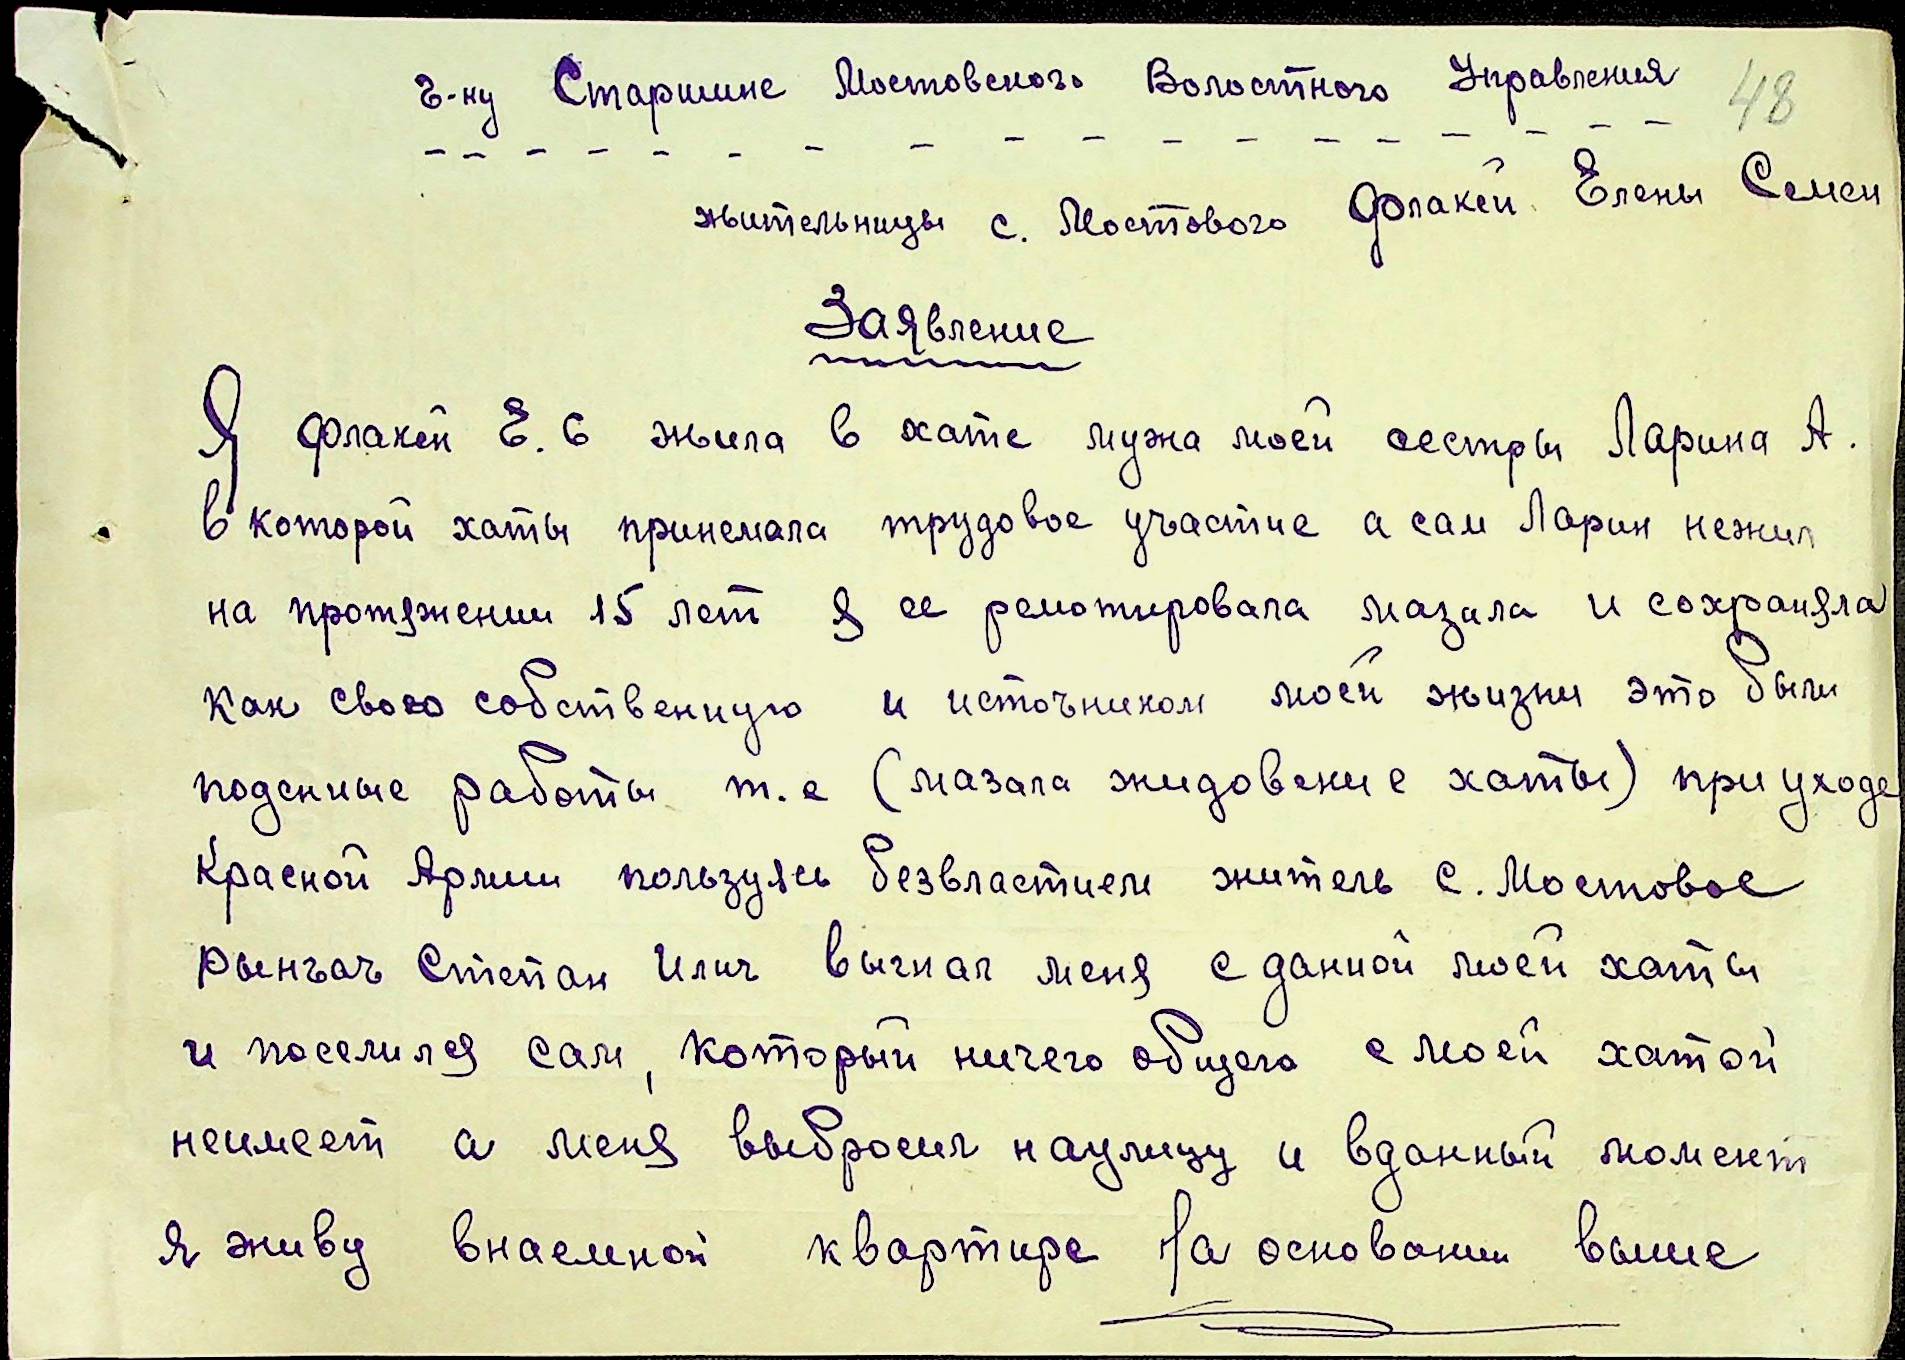 Г-ну Старшине Мостовского Волостного Управления 48
жительницы с. Мостового Флакей Елены Семен
Заявление
Я Флакей Е. С жила в хате мужа моей сестры Ларина А.
в которой хаты принемала трудовое участие а сам Ларин нежил
на протяжении 15 лет я ее ремотировала мазала и сохраняла
как свою собственную и источником моей жизни это были
поденные работы т.е (мазала жидовские хаты) при уходе
Красной Армии пользуясь безвластием житель с. Мостовое
Рынчач Степан Илич выгнал меня с данной моей хаты
и поселился сам, который ничего общего с моей хатой
неимеет а меня выбросил наулицу и вданный момент
я живу внаемной квартире На основании выше